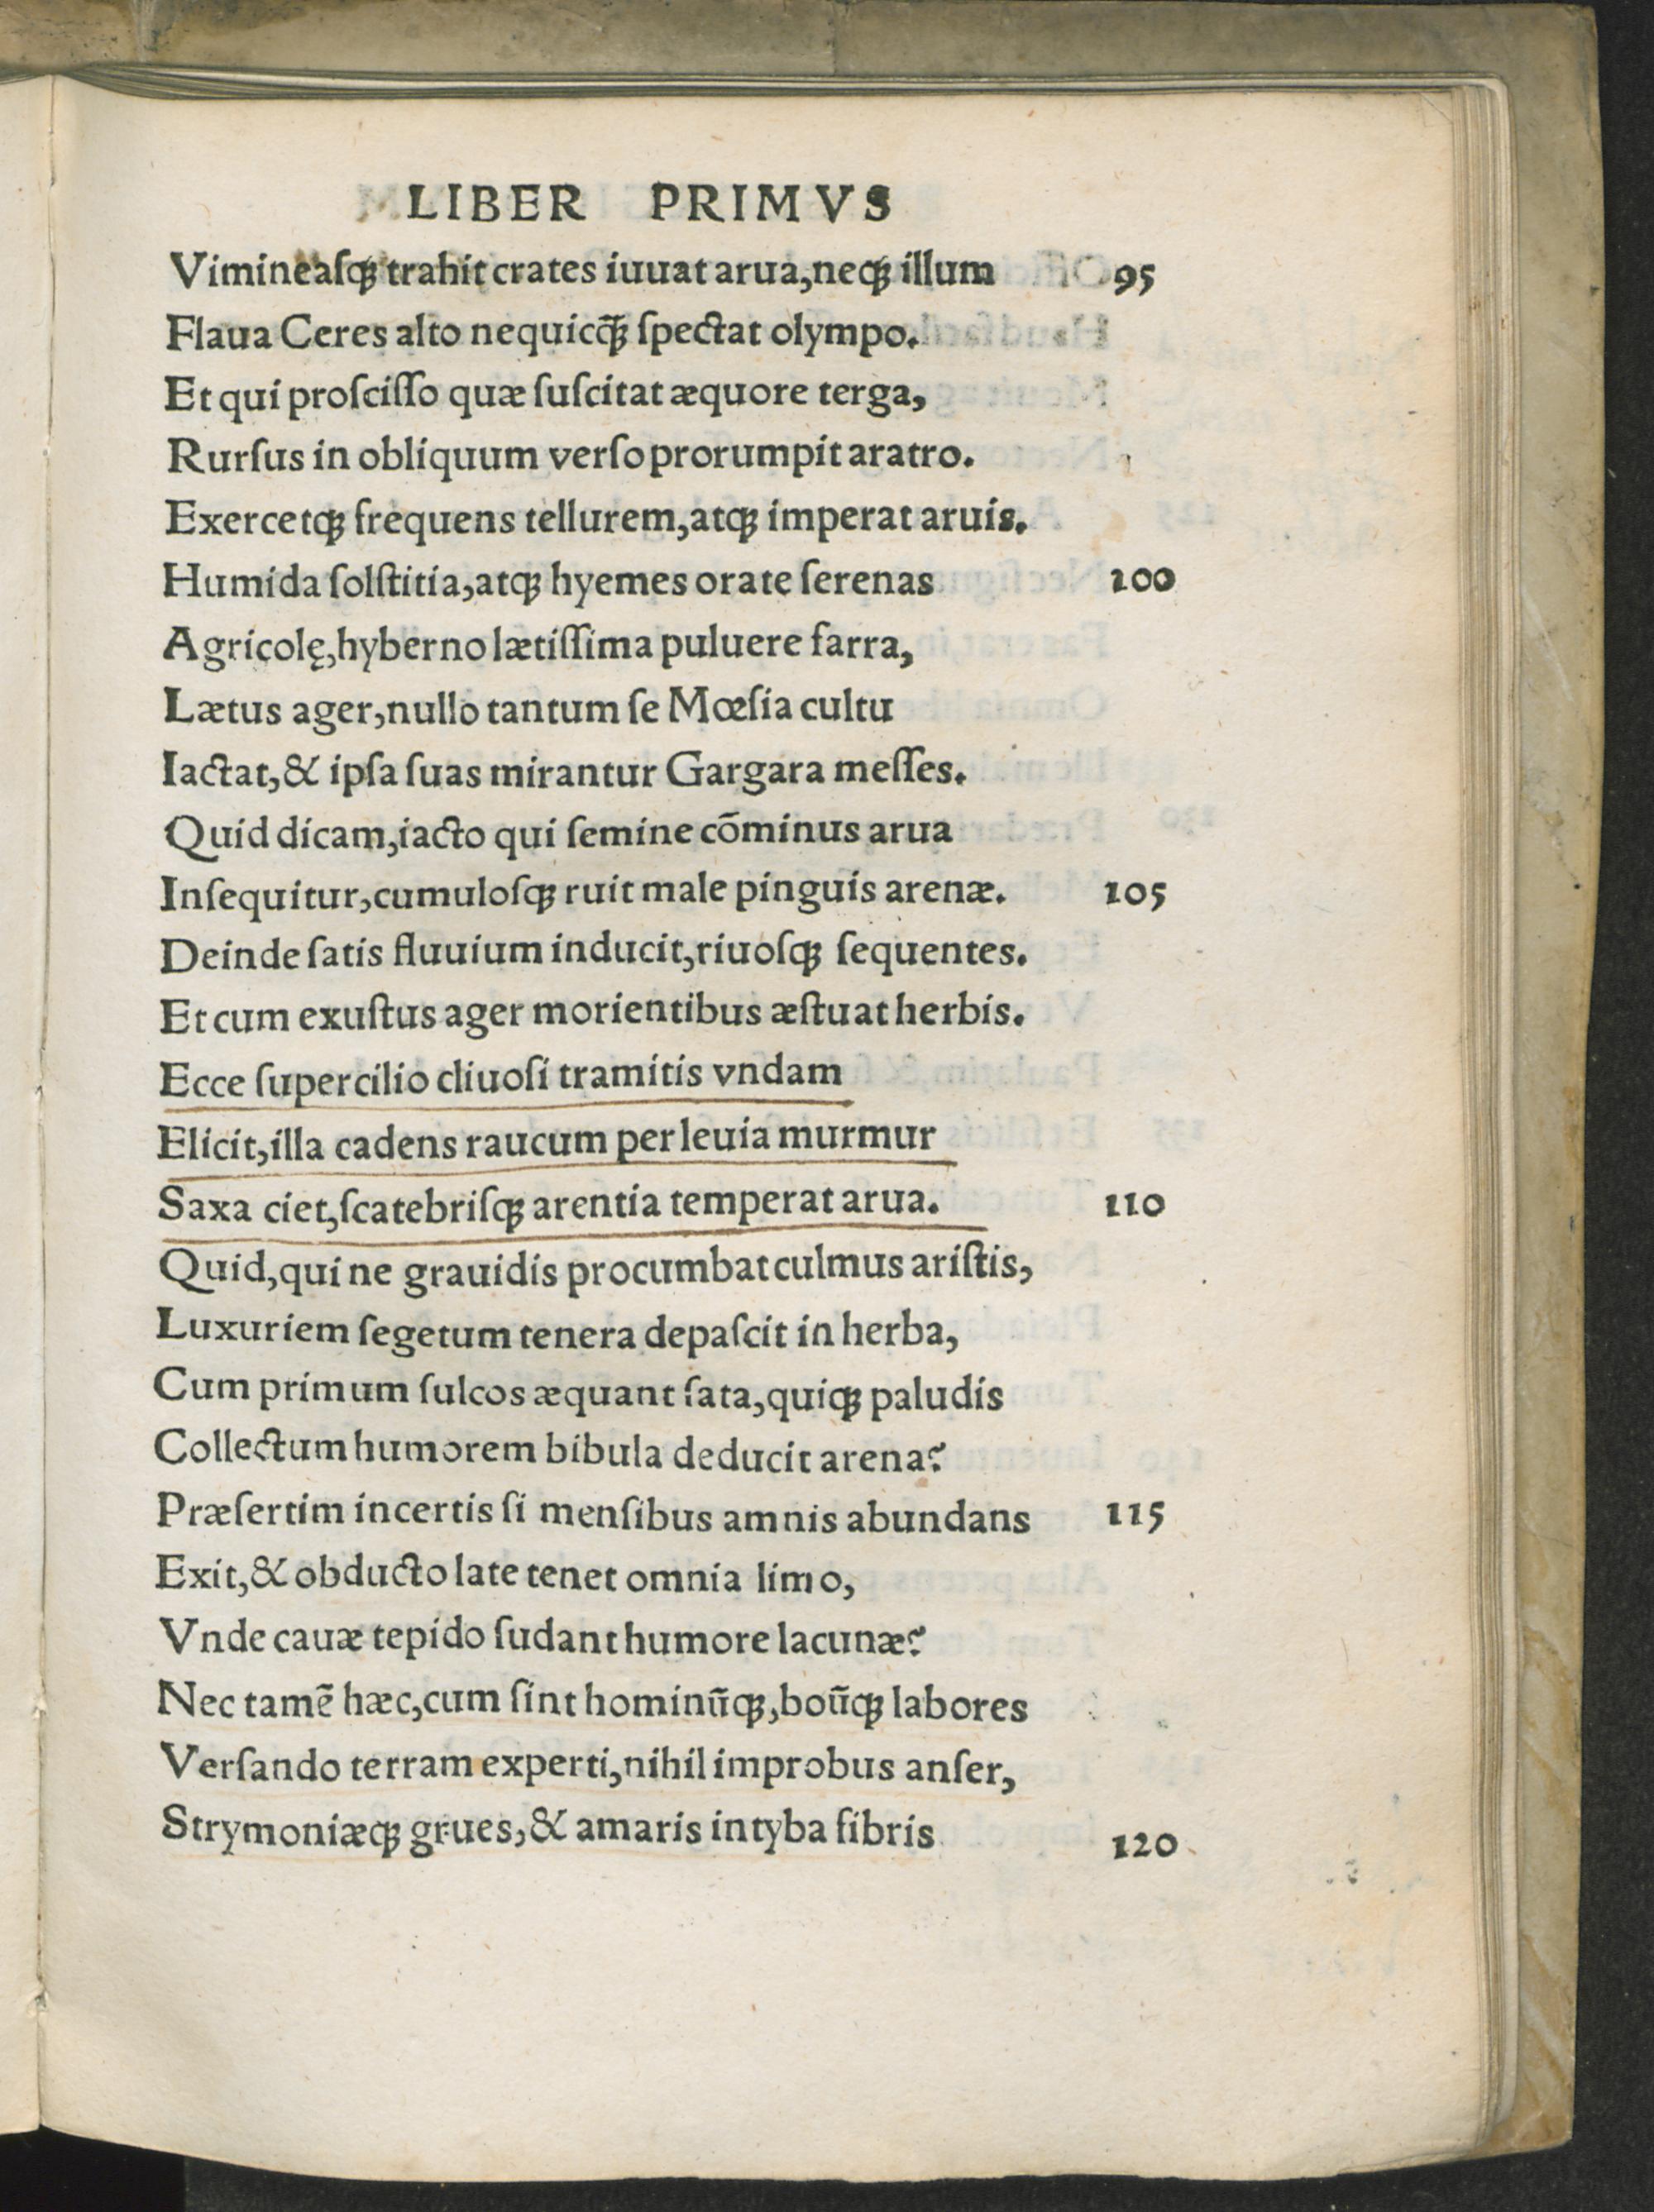 LIBER PRIMVS
Vimineaſqꝫ trahit crates iuuat arua, neqꝫ illum 95
Flaua Ceres alto nequicq̃ꝫ ſpectat olympo.
Et qui proſciſſo quæ ſuſcitat æquore terga,
Rurſus in obliquum verſo prorumpit aratro.
Exercetqꝫ frequens tellurem, atqꝫ imperat aruis.
Humida ſolſtitia, atqꝫ hyemes orate ſerenas 100
Agricolę, hyberno lætiſſima puluere farra,
Lætus ager, nullo tantum ſe Mœſia cultu
Iactat, & ipſa ſuas mirantur Gargara meſſes.
Quid dicam, iacto qui ſemine cōminus arua
Inſequitur, cumuloſqꝫ ruit male pinguis arenæ. 105
Deinde ſatis fluuium inducit, riuoſqꝫ ſequentes.
Et cum exuſtus ager morientibus æſtuat herbis.
Ecce ſupercilio cliuoſi tramitis vndam
Elicit, illa cadens raucum per leuia murmur
Saxa ciet, ſcatebriſqꝫ arentia temperat arua. 110
Quid, qui ne grauidis procumbat culmus ariſtis,
Luxuriem ſegetum tenera depaſcit in herba,
Cum primum ſulcos æquant ſata, quiqꝫ paludis
Collectum humorem bibula deducit arena?
Præſertim incertis ſi menſibus amnis abundans 115
Exit, & obducto late tenet omnia limo,
Vnde cauæ tepido ſudant humore lacunæ?
Nec tamē hæc, cum ſint hominūqꝫ, boūqꝫ labores
Verſando terram experti, nihil improbus anſer,
Strymoniæqꝫ grues, & amaris intyba fibris 120